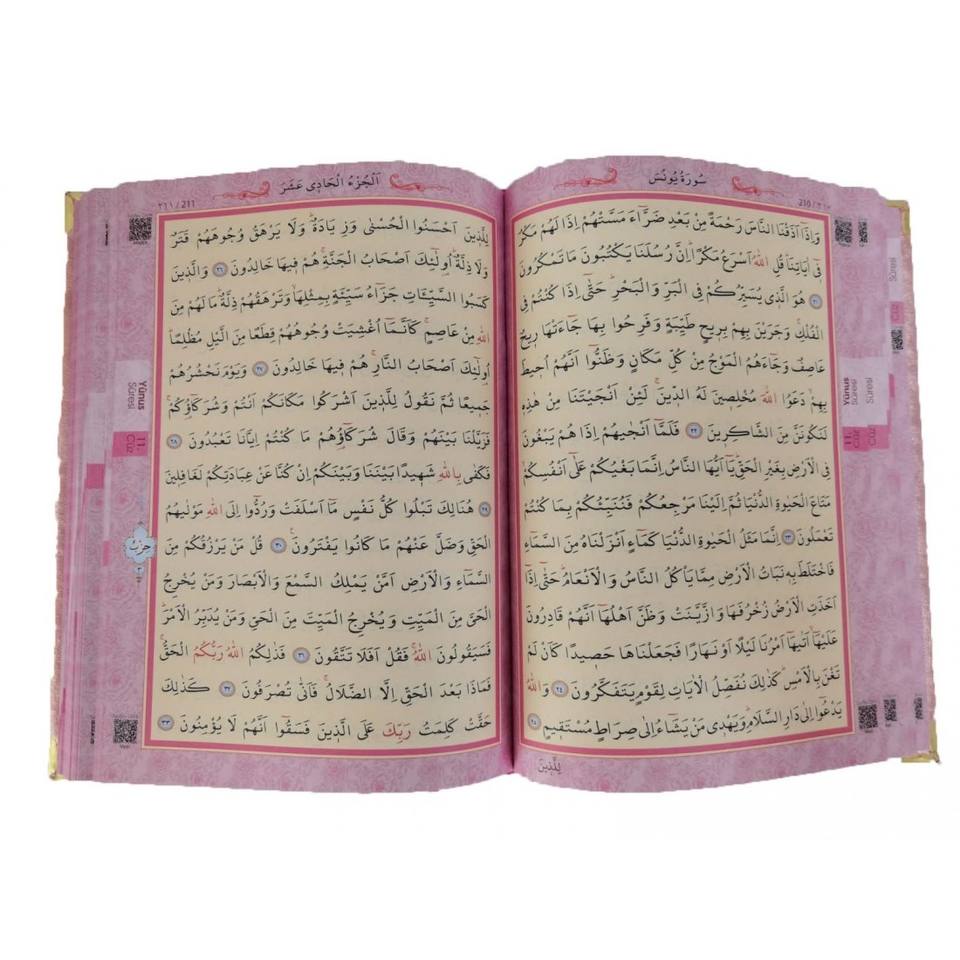 سُورَةُ يُونُسَ
210 / ٢١٠
وَاِذَٓا اَذَقْنَا النَّاسَ رَحْمَةً مِنْ بَعْدِ ضَرَّٓاءَ مَسَّتْهُمْ اِذَا لَهُمْ مَكْرٌ
فٖٓي اٰيَاتِنَاؕ قُلِ اللّٰهُ اَسْرَعُ مَكْرًاؕ اِنَّ رُسُلَنَا يَكْتُبُونَ مَا تَمْكُرُونَ
﴿٢١﴾ هُوَ الَّذٖي يُسَيِّرُكُمْ فِي الْبَرِّ وَالْبَحْرِؕ حَتّٰٓى اِذَا كُنْتُمْ فِي
الْفُلْكِۚ وَجَرَيْنَ بِهِمْ بِرٖيحٍ طَيِّبَةٍ وَفَرِحُوا بِهَا جَٓاءَتْهَا رٖيحٌ
عَاصِفٌ وَجَٓاءَهُمُ الْمَوْجُ مِنْ كُلِّ مَكَانٍ وَظَنُّٓوا اَنَّهُمْ اُحٖيطَ
بِهِمْۙ دَعَوُا اللّٰهَ مُخْلِصٖينَ لَهُ الدّٖينَۚ لَئِنْ اَنْجَيْتَنَا مِنْ هٰذِهٖ
لَنَكُونَنَّ مِنَ الشَّاكِرٖينَ ﴿٢٢﴾ فَلَمَّٓا اَنْجٰيهُمْ اِذَا هُمْ يَبْغُونَ
فِي الْاَرْضِ بِغَيْرِ الْحَقِّؕ يَٓا اَيُّهَا النَّاسُ اِنَّمَا بَغْيُكُمْ عَلٰٓى اَنْفُسِكُمْۙ
مَتَاعَ الْحَيٰوةِ الدُّنْيَاؗ ثُمَّ اِلَيْنَا مَرْجِعُكُمْ فَنُنَبِّئُكُمْ بِمَا كُنْتُمْ
تَعْمَلُونَ ﴿٢٣﴾ اِنَّمَا مَثَلُ الْحَيٰوةِ الدُّنْيَا كَمَٓاءٍ اَنْزَلْنَاهُ مِنَ السَّمَٓاءِ
فَاخْتَلَطَ بِهٖ نَبَاتُ الْاَرْضِ مِمَّا يَأْكُلُ النَّاسُ وَالْاَنْعَامُؕ حَتّٰٓى اِذَٓا
اَخَذَتِ الْاَرْضُ زُخْرُفَهَا وَازَّيَّنَتْ وَظَنَّ اَهْلُهَٓا اَنَّهُمْ قَادِرُونَ
عَلَيْهَٓاۙ اَتٰيهَٓا اَمْرُنَا لَيْلًا اَوْ نَهَارًا فَجَعَلْنَاهَا حَصٖيدًا كَاَنْ لَمْ
تَغْنَ بِالْاَمْسِؕ كَذٰلِكَ نُفَصِّلُ الْاٰيَاتِ لِقَوْمٍ يَتَفَكَّرُونَ ﴿٢٤﴾ وَاللّٰهُ
يَدْعُٓوا اِلٰى دَارِ السَّلَامِؕ وَيَهْدٖي مَنْ يَشَٓاءُ اِلٰى صِرَاطٍ مُسْتَقٖيمٍ ﴿٢٥﴾
لِلَّذٖينَ
Yûnus
Sûresi
11.
Cüz
اَلْجُزْءُ الْحَادٖي عَشَرَ
٢١١ / 211
لِلَّذٖينَ اَحْسَنُوا الْحُسْنٰى وَزِيَادَةٌؕ وَلَا يَرْهَقُ وُجُوهَهُمْ قَتَرٌ
وَلَا ذِلَّةٌؕ اُو۬لٰٓئِكَ اَصْحَابُ الْجَنَّةِۚ هُمْ فٖيهَا خَالِدُونَ ﴿٢٦﴾ وَالَّذٖينَ
كَسَبُوا السَّيِّـَٔاتِ جَزَٓاءُ سَيِّئَةٍ بِمِثْلِهَاۙ وَتَرْهَقُهُمْ ذِلَّةٌؕ مَا لَهُمْ مِنَ
اللّٰهِ مِنْ عَاصِمٍۚ كَاَنَّمَٓا اُغْشِيَتْ وُجُوهُهُمْ قِطَعًا مِنَ الَّيْلِ مُظْلِمًاؕ
اُو۬لٰٓئِكَ اَصْحَابُ النَّارِۚ هُمْ فٖيهَا خَالِدُونَ ﴿٢٧﴾ وَيَوْمَ نَحْشُرُهُمْ
جَمٖيعًا ثُمَّ نَقُولُ لِلَّذٖينَ اَشْرَكُوا مَكَانَكُمْ اَنْتُمْ وَشُرَكَٓاؤُ۬كُمْۚ
فَزَيَّلْنَا بَيْنَهُمْ وَقَالَ شُرَكَٓاؤُ۬هُمْ مَا كُنْتُمْ اِيَّانَا تَعْبُدُونَ ﴿٢٨﴾
فَكَفٰى بِاللّٰهِ شَهٖيدًا بَيْنَنَا وَبَيْنَكُمْ اِنْ كُنَّا عَنْ عِبَادَتِكُمْ لَغَافِلٖينَ
﴿٢٩﴾ هُنَالِكَ تَبْلُوا كُلُّ نَفْسٍ مَٓا اَسْلَفَتْ وَرُدُّٓوا اِلَى اللّٰهِ مَوْلٰيهُمُ
الْحَقِّ وَضَلَّ عَنْهُمْ مَا كَانُوا يَفْتَرُونَ۟ ﴿٣٠﴾ قُلْ مَنْ يَرْزُقُكُمْ مِنَ
السَّمَٓاءِ وَالْاَرْضِ اَمَّنْ يَمْلِكُ السَّمْعَ وَالْاَبْصَارَ وَمَنْ يُخْرِجُ
الْحَيَّ مِنَ الْمَيِّتِ وَيُخْرِجُ الْمَيِّتَ مِنَ الْحَيِّ وَمَنْ يُدَبِّرُ الْاَمْرَؕ
فَسَيَقُولُونَ اللّٰهُۚ فَقُلْ اَفَلَا تَتَّقُونَ ﴿٣١﴾ فَذٰلِكُمُ اللّٰهُ رَبُّكُمُ الْحَقُّۚ
فَمَاذَا بَعْدَ الْحَقِّ اِلَّا الضَّلَالُۚ فَاَنّٰى تُصْرَفُونَ ﴿٣٢﴾ كَذٰلِكَ
حَقَّتْ كَلِمَتُ رَبِّكَ عَلَى الَّذٖينَ فَسَقُٓوا اَنَّهُمْ لَا يُؤْمِنُونَ ﴿٣٣﴾
حِزْبُ
٣
Yûnus
Sûresi
11.
Cüz